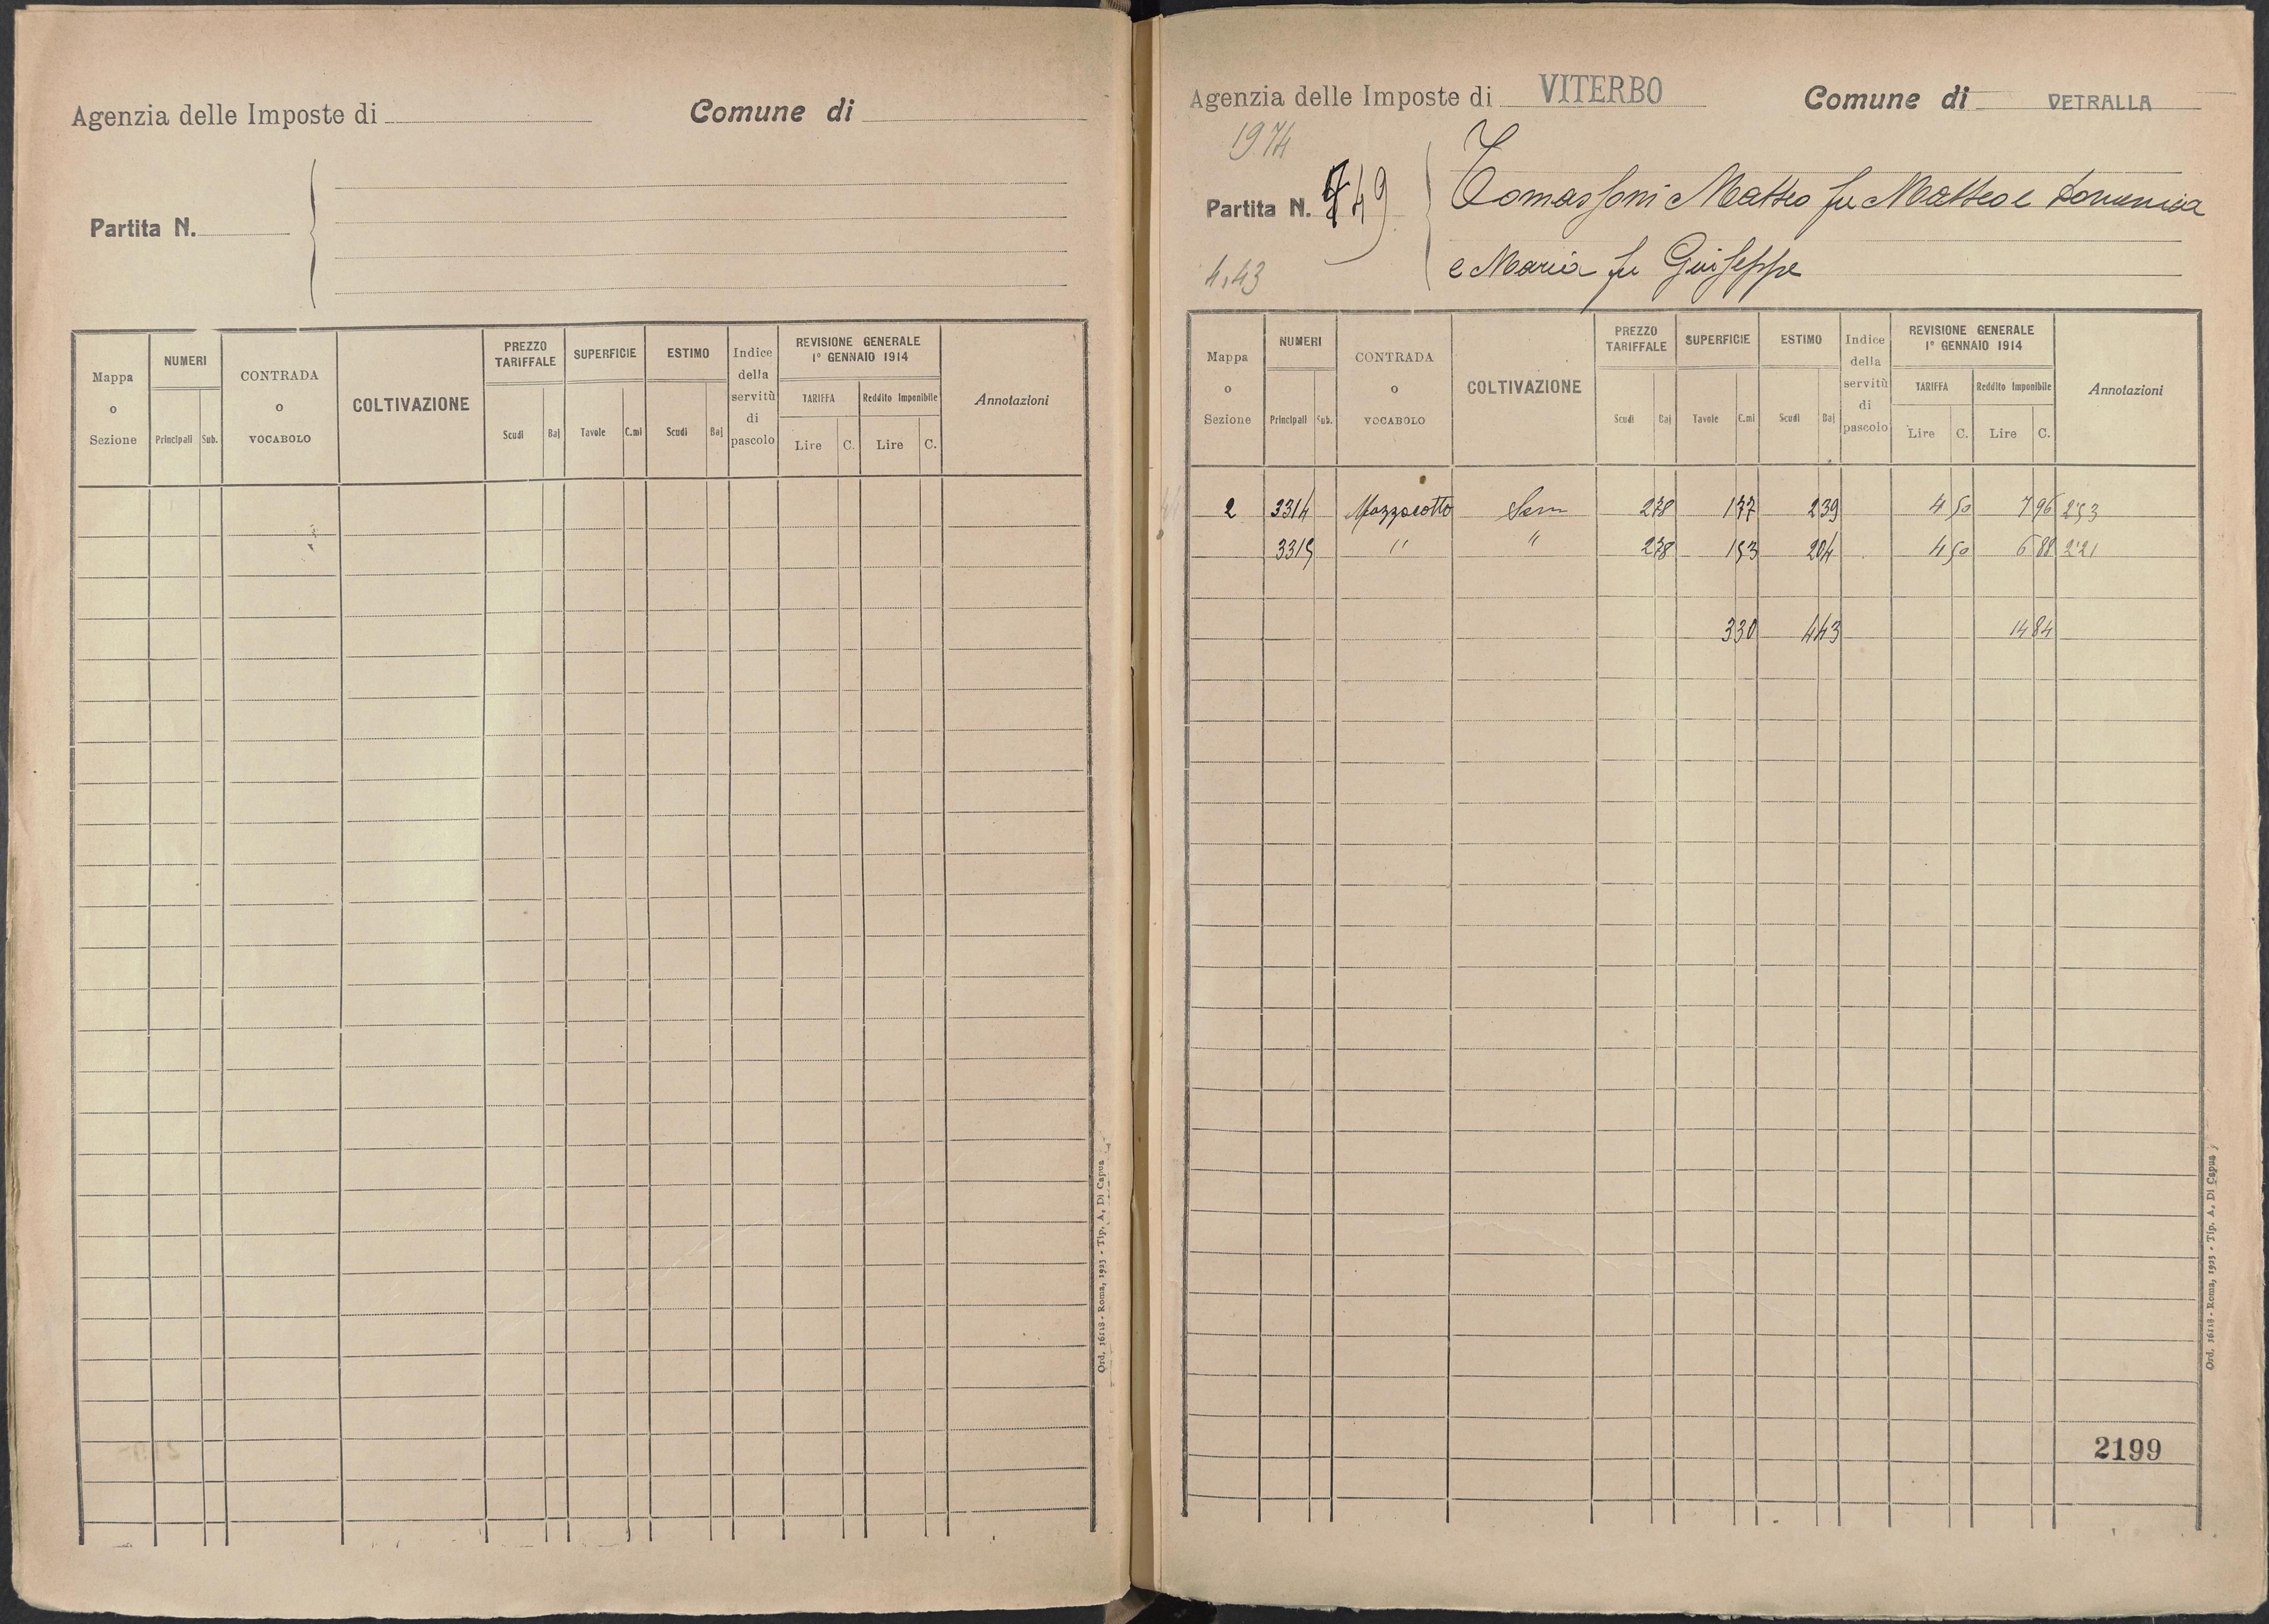 Agenzia delle Imposte di
Comune di
Partita N.
Mappa o Sezione
NUMERI
Principali Sub.
CONTRADA o VOCABOLO
COLTIVAZIONE
PREZZO TARIFFALE
Scudi Baj
SUPERFICIE
Tavole C.mi
ESTIMO
Scudi Baj
Indice della servitù di pascolo
REVISIONE GENERALE
1° GENNAIO 1914
TARIFFA Reddito Imponibile
Lire C. Lire C.
Annotazioni
Ord. 16118 - Roma, 1923 - Tip. A. Di Capua
Agenzia delle Imposte di VITERBO
Comune di VETRALLA
1974
Partita N. 749
Tomassoni Matteo fu Matteo e Domenica
e Maria fu Giuseppe
4.43
Mappa o Sezione
NUMERI
Principali Sub.
CONTRADA o VOCABOLO
COLTIVAZIONE
PREZZO TARIFFALE
Scudi Baj
SUPERFICIE
Tavole C.mi
ESTIMO
Scudi Baj
Indice della servitù di pascolo
REVISIONE GENERALE
1° GENNAIO 1914
TARIFFA Reddito Imponibile
Lire C. Lire C.
Annotazioni
2 3314 Mazzacotto Sem 278 177 239 4 50 7 96 2.53
3315 " " 278 153 204 4 50 6 88 2.21
330 443 14 84
2199
Ord. 16118 - Roma, 1923 - Tip. A. Di Capua